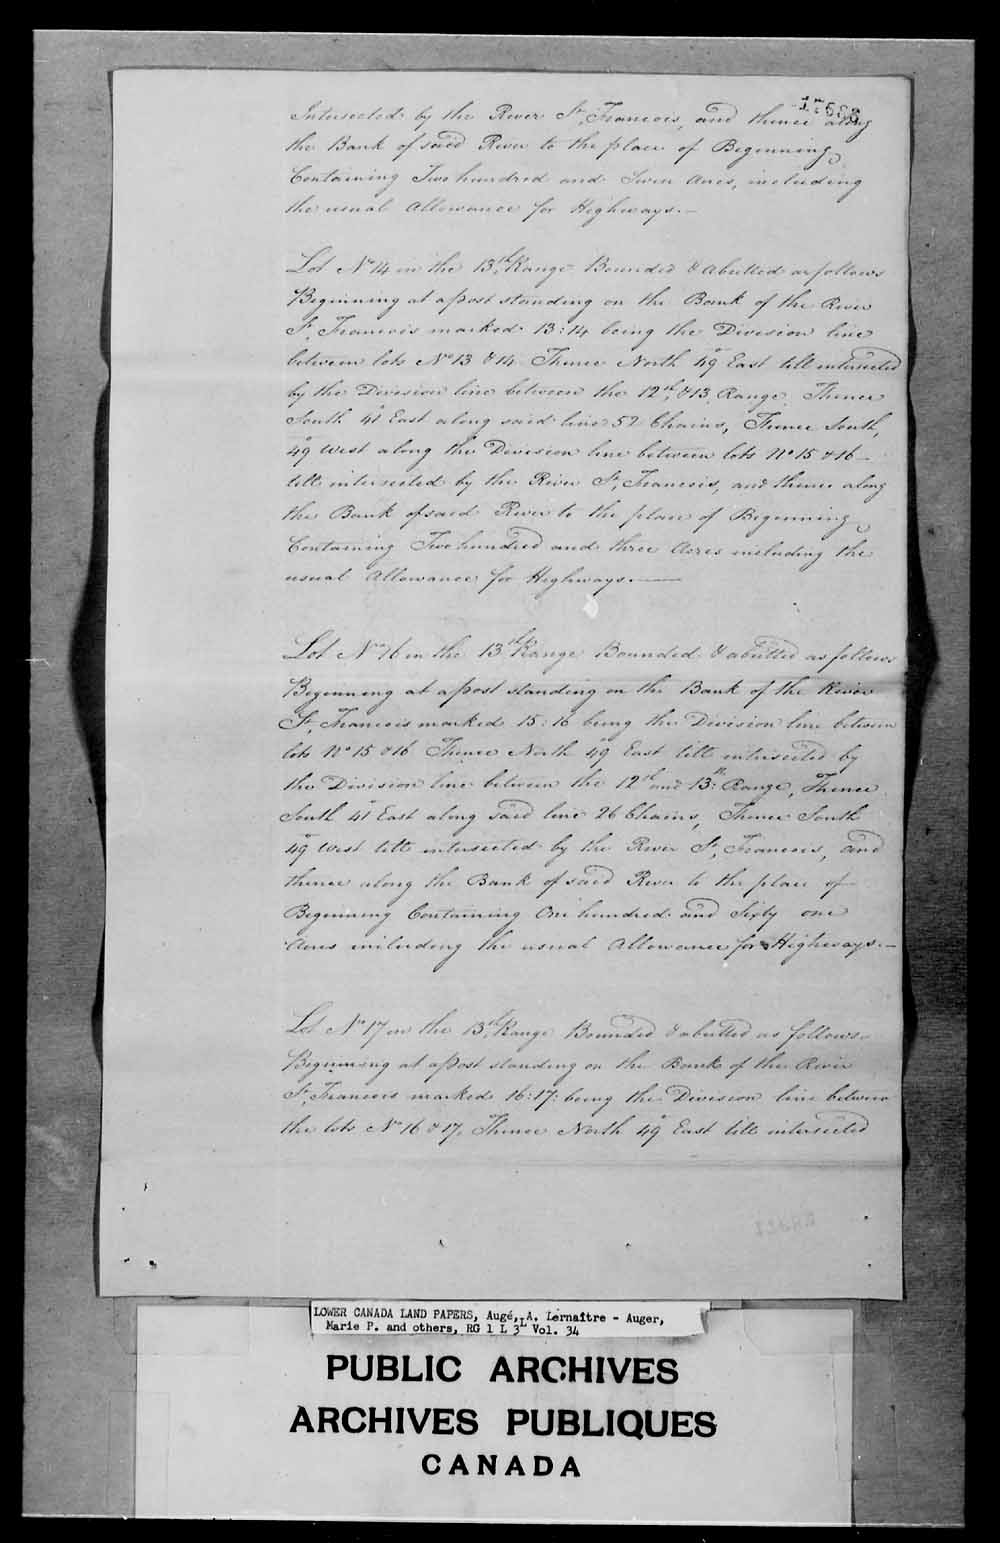 17583
Intersected by the River St. Francois, and thence along
the Bank of said River to the place of Beginning
Containing Two hundred and Seven Acres, including
the usual Allowance for Highways.—
Lot No 14 in the 13th Range Bounded & abutted as follows
Beginning at a post standing on the Bank of the River
St. Francois marked 13:14 being the Division line
between lots No 13 & 14 Thence North 49° East till intersected
by the Division line between the 12th & 13 Range, Thence
South 41° East along said line 52 Chains, Thence South,
49° West along the Division line between lots No 15 & 16—
till intersected by the River St. Francois, and thence along
the Bank of said River to the place of Beginning
Containing Two hundred and three Acres including the
usual Allowance for Highways.—
Lot No 16 in the 13th Range Bounded & abutted as follows
Beginning at a post standing on the Bank of the River
St. Francois marked 15:16 being the Division line between
lots No 15 & 16 Thence North 49° East till intersected by
the Division line between the 12th and 13th Range, Thence
South 41° East along said line 26 Chains, Thence South
49° West till intersected by the River St. Francois, and
thence along the Bank of said River to the place of
Beginning Containing One hundred and Sixty one
Acres including the usual Allowance for Highways.—
Lot No 17 in the 13th Range Bounded & abutted as follows.
Beginning at a post standing on the Bank of the River
St. Francois marked 16:17: being the Division line between
the lots No 16 & 17, Thence North 49° East till intersected
LOWER CANADA LAND PAPERS, Augé, A. Lemaître - Auger,
Marie P. and others, RG 1 L 3L Vol. 34
PUBLIC ARCHIVES
ARCHIVES PUBLIQUES
CANADA